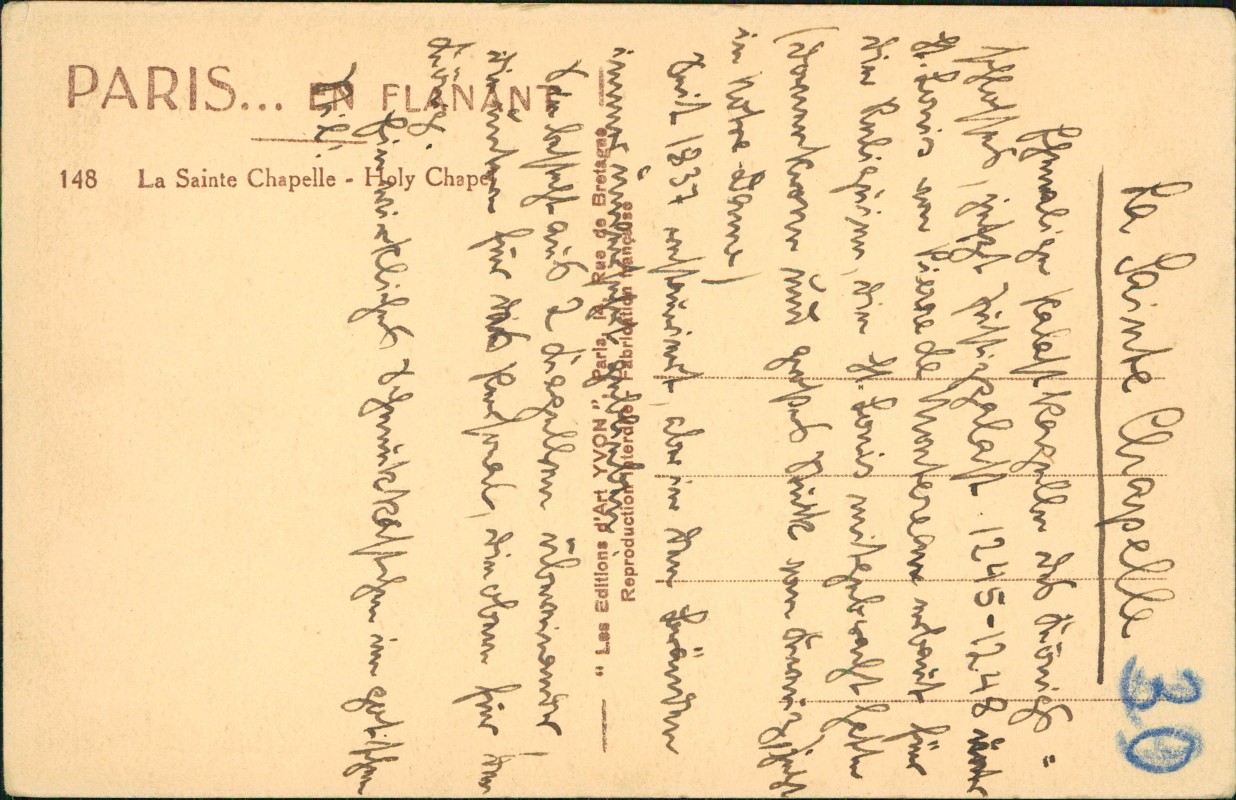 PARIS... EN FLÂNANT
148 La Sainte Chapelle - Holy Chapel
"Les Editions d'Art YVON", Paris, Rue de Bretagne
Reproduction Interdite Fabrication française
La Sainte Chapelle
30
Ehemalige Palastkapelle des Königs=
schlosses, jetzt Justizpalast. 1245-1248 unter
Hl. Louis von Pierre de Montereau erbaut für
die Reliquien, die Hl. Louis mitgebracht hatte
(Dornenkrone und großes Stück vom Kreuz, jetzt
in Notre-Dame)
Seit 1837 restauriert, aber in den
immer
besteht aus 2 Kapellen übereinander,
die untere für das Personal, die obere für den
König.
Ein wirkliches Schmuckkästchen im gotischen
Stil.